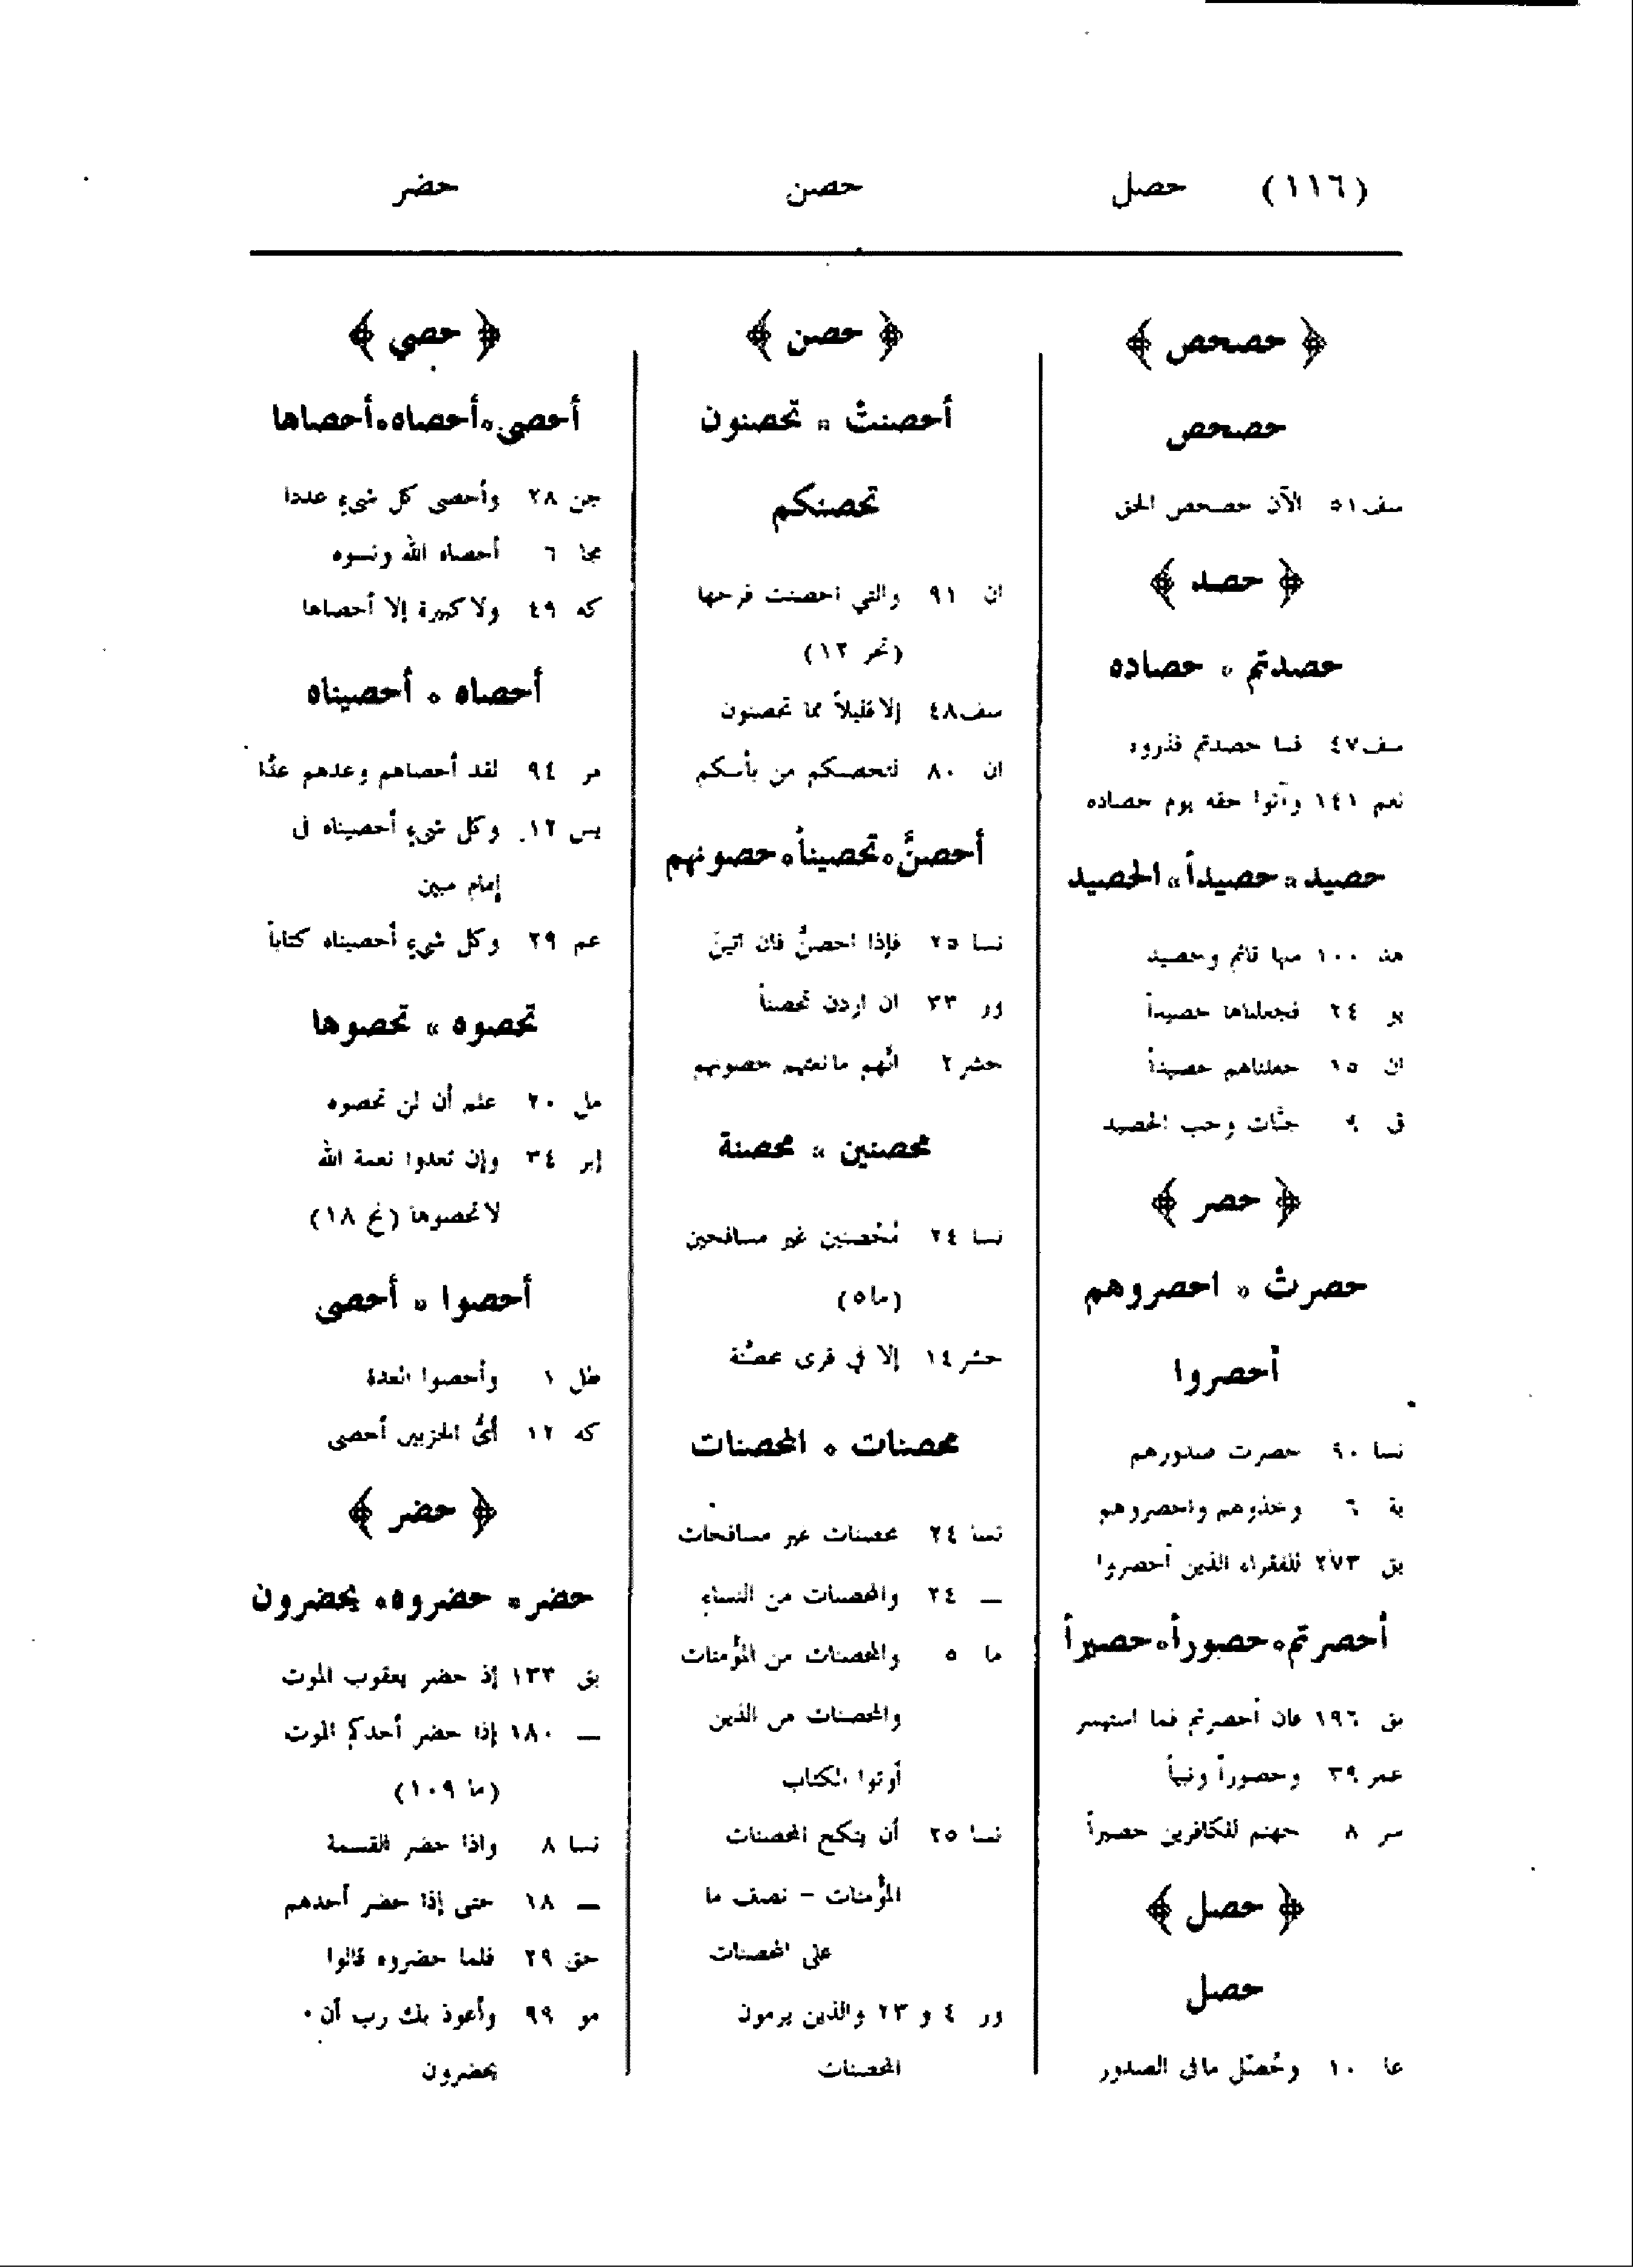 (١١٦) حصل حصن حضر
﴿ حصحص ﴾
حصحص
سف ٥١ الآن حصحص الحق
﴿ حصد ﴾
حصدتم * حصاده
سف ٤٧ فما حصدتم فذروه
نعم ١٤١ وآتوا حقه يوم حصاده
حصيد * حصيداً * الحصيد
هد ١٠٠ منها قائم وحصيد
ير ٢٤ فجعلناها حصيداً
ان ١٥ جعلناهم حصيداً
ق ٩ جنَّات وحب الحصيد
﴿ حصر ﴾
حصرتْ * احصروهم
أحصروا
نسا ٩٠ حصرت صدورهم
بة ٦ وخذوهم واحصروهم
بق ٢٧٣ للفقراء الذين أحصروا
أحصرتم * حصوراً * حصيراً
بق ١٩٦ فان أحصرتم فما استيسر
عمر ٣٩ وحصوراً ونبياً
سر ٨ جهنم للكافرين حصيراً
﴿ حصل ﴾
حصل
عا ١٠ وحُصّل مافى الصدور
﴿ حصن ﴾
أحصنتْ * تحصنون
تحصنكم
ان ٩١ والتي احصنت فرجها
(تحر ١٢)
سف ٤٨ إلا قليلاً مما تحصنون
ان ٨٠ لتحصنكم من بأسكم
أحصنَّ * تحصيناً * حصونهم
نسا ٢٥ فإذا احصنَّ فان اتين
ور ٣٣ ان اردن تحصناً
حشر ٢ انَّهم مانعتهم حصونهم
محصنين * محصنة
نسا ٢٤ مُحْصنين غير مسافحين
(ما ٥)
حشر ١٤ إلا في قرى محصَّنة
محصنات * المحصنات
نسا ٢٤ محصنات غير مسافحات
ــ ٢٤ والمحصنات من النساء
ما ٥ والمحصنات من المؤمنات
والمحصنات من الذين
أوتوا الكتاب
نسا ٢٥ أن ينكح المحصنات
المؤمنات - نصف ما
على المحصنات
ور ٤ و ٢٣ والذين يرمون
المحصنات
﴿ حصي ﴾
أحصى * أحصاه * أحصاها
جن ٢٨ وأحصى كل شيءٍ عددا
مجا ٦ أحصاه الله ونسوه
كه ٤٩ ولا كبيرة إلا أحصاها
أحصاه * أحصيناه
مر ٩٤ لقد أحصاهم وعدهم عدًّا
يس ١٢ وكل شيءٍ أحصيناه فى
إمام مبين
عم ٢٩ وكل شيءٍ أحصيناه كتاباً
تحصوه * تحصوها
مل ٢٠ علم أن لن تحصوه
إبر ٣٤ وإن تعدوا نعمة الله
لا تحصوها (نح ١٨)
أحصوا * أحصى
طل ١ وأحصوا العدة
كه ١٢ أىُّ الحزبين أحصى
﴿ حضر ﴾
حضر * حضروه * يحضرون
بق ١٣٣ إذ حضر يعقوب الموت
ــ ١٨٠ إذا حضر أحدكم الموت
(ما ١٠٩)
نسا ٨ واذا حضر القسمة
ــ ١٨ حتى إذا حضر أحدهم
حق ٢٩ فلما حضروه قالوا
مو ٩٩ وأعوذ بك رب أن
يحضرون